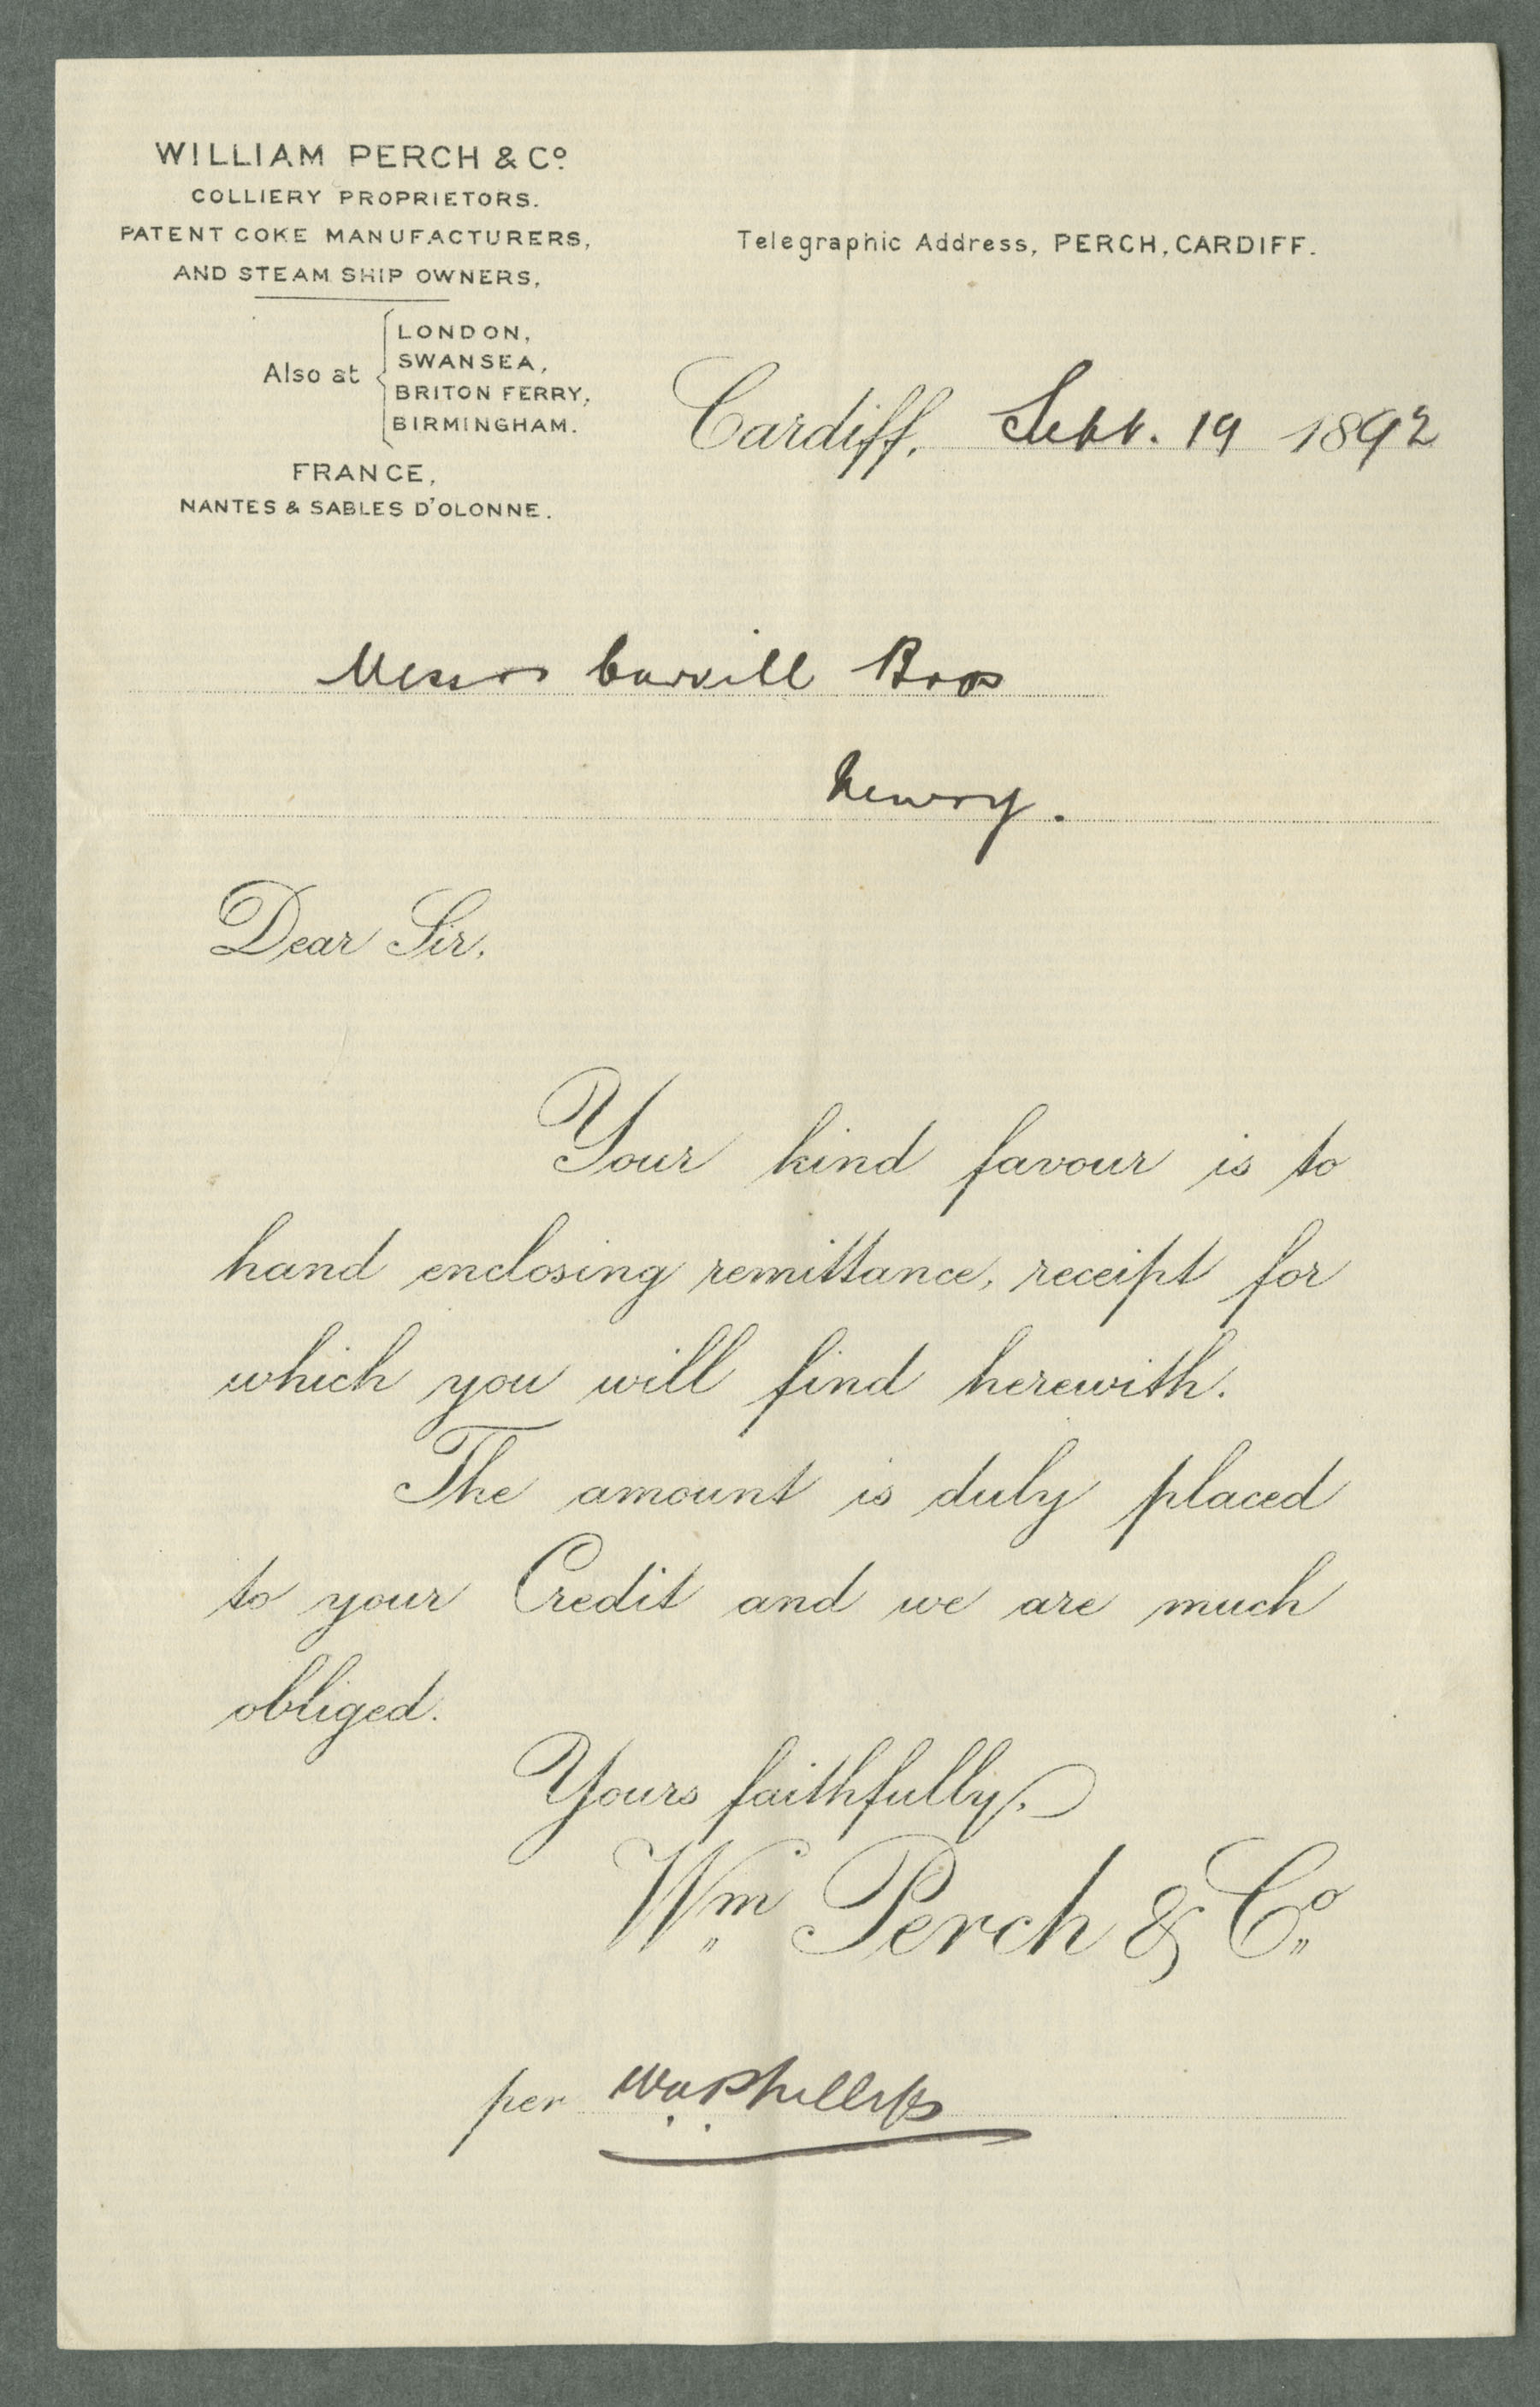 WILLIAM PERCH & Cº
COLLIERY PROPRIETORS.
PATENT COKE MANUFACTURERS,
AND STEAM SHIP OWNERS,
Also at
LONDON,
SWANSEA,
BRITON FERRY,
BIRMINGHAM.
FRANCE,
NANTES & SABLES D'OLONNE.
Telegraphic Address, PERCH, CARDIFF.
Cardiff, Sept. 19 1892
Messrs Carvill Bros
Newry.
Dear Sir,
Your kind favour is to
hand enclosing remittance, receipt for
which you will find herewith.
The amount is duly placed
to your Credit and we are much
obliged.
Yours faithfully,
Wm Perch & Cº
per Phillips